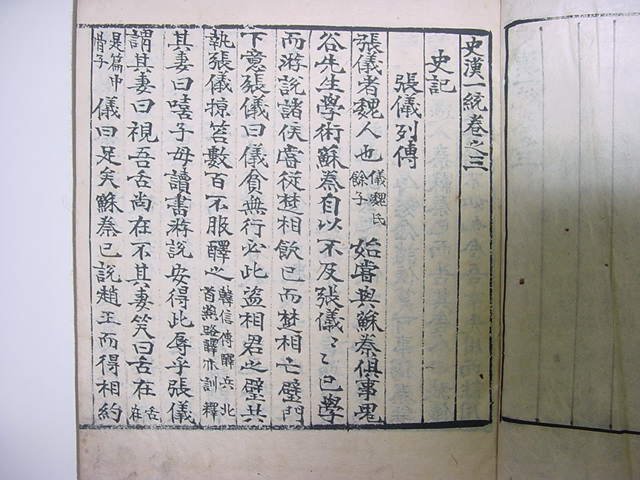 史漢一統卷之三
史記
張儀列傳
張儀者魏人也儀魏氏餘子始嘗與蘇秦俱事鬼
谷先生學術蘇秦自以不及張儀〻已學
而游說諸侯嘗從楚相飮已而楚相亡璧門
下意張儀曰儀貧無行必此盜相君之璧共
執張儀掠笞數百不服醳之韓信傳醳兵北首燕路醳亦訓釋
其妻曰嘻子毋讀書游說安得此辱乎張儀
謂其妻曰視吾舌尚在不其妻笑曰舌在舌在
是篇中骨子儀曰足矣蘇秦已說趙王而得相約